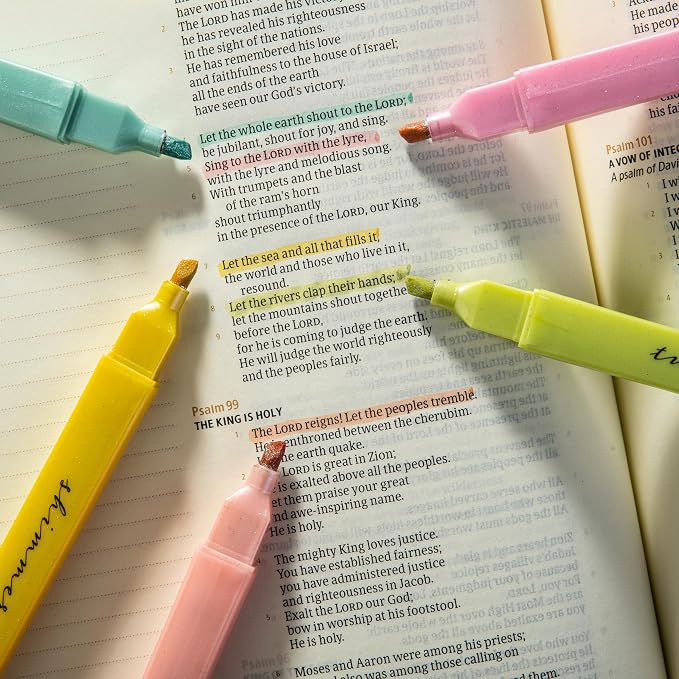 have won him
The LORD has made his victory
he has revealed his righteousness
in the sight of the nations.
He has remembered his love
and faithfulness to the house of Israel;
all the ends of the earth
have seen our God's victory.
Let the whole earth shout to the LORD;
be jubilant, shout for joy, and sing.
Sing to the LORD with the lyre,
with the lyre and melodious song.
With trumpets and the blast
of the ram's horn
shout triumphantly
in the presence of the LORD, our King.
Let the sea and all that fills it,
the world and those who live in it,
resound.
Let the rivers clap their hands;
let the mountains shout together
before the LORD,
for he is coming to judge the earth.
He will judge the world righteously
and the peoples fairly.
Psalm 99
THE KING IS HOLY
The LORD reigns! Let the peoples tremble.
He enthroned between the cherubim.
the earth quake.
LORD is great in Zion;
is exalted above all the peoples.
et them praise your great
and awe-inspiring name.
He is holy.
The mighty King loves justice.
You have established fairness;
you have administered justice
and righteousness in Jacob.
Exalt the LORD our God;
bow in worship at his footstool.
He is holy.
Moses and Aaron were among his priests;
also was among those calling on
He made
his people
Psalm 101
A VOW OF INTEG
A psalm of David
shimmes